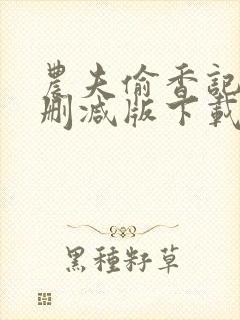 農夫偷香記
刪減版下載
黑種籽草